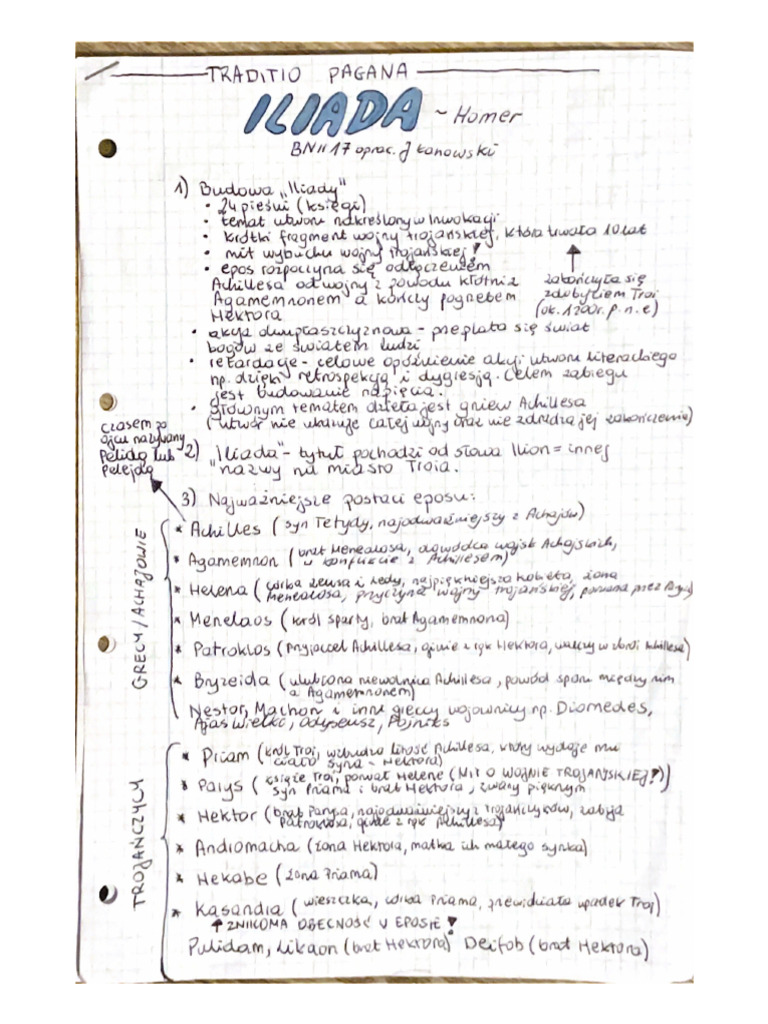 TRADITIO PAGANA
ILIADA ~ Homer
BN II 17 oprac. J Łanowski
1) Budowa „Iliady"
• 24 pieśni (księgi)
• temat utworu nakreślony w inwokacji
• krótki fragment wojny trojańskiej, która trwała 10 lat
• mit wybuchu wojny trojańskiej!
• epos rozpoczyna się odłączeniem
Achillesa od wojny z powodu kłótni z
Agamemnonem a kończy pogrzebem
Hektora
zakończyła się
zdobyciem Troi
(ok. 1200r. p.n.e)
• akcja dwupłaszczyznowa - przeplata się świat
bogów ze światem ludzi
• retardacje - celowe opóźnienie akcji utworu literackiego
np. dzięki retrospekcją i dygresją. Celem zabiegu
jest budowanie napięcia.
• głównym tematem dzieła jest gniew Achillesa
(utwór nie ukazuje całej wojny oraz nie zdradza jej zakończenia)
czasem za
ojcu nazywany
Pelidą lub
pelejdą
2) „Iliada" - tytuł pochodzi od słowa Ilion = innej
nazwy na miasto Troia.
3) Najważniejsze postaci eposu:
GRECY/ACHAJOWIE
* Achilles (syn Tetydy, najodważniejszy z Achajów)
* Agamemnon (brat Menealosa, dowódca wojsk Achajskich,
w konflikcie z Achillesem)
* Helena (córka Zeusa i Ledy, najpiękniejsza kobieta, żona
Menealosa, przyczyna wojny trojańskiej, porwana przez Parysa)
* Menelaos (król Sparty, brat Agamemnona)
* Patroklos (przyjaciel Achillesa, ginie z rąk Hektora, walczy w zbroi Achillesa)
* Bryzeida (ulubiona niewolnica Achillesa, powód sporu między nim
a Agamemnonem)
Nestor, Machon i inni greccy wojownicy np. Diomedes,
Ajas Wielki, Odyseusz, Fojniks
TROJAŃCZYCY
* Priam (król Troi, wzbudza litość Achillesa, który wydaje mu
ciało syna - Hektora)
* Parys (książe Troi, porwał Helene (MIT O WOJNIE TROJAŃSKIEJ!))
syn Priama i brat Hektora, zwany pięknym
* Hektor (brat Parysa, najodważniejszy z Trojańczyków, zabija
Patroklosa, ginie z rąk Achillesa)
* Andromacha (żona Hektora, matka ich małego synka)
* Hekabe (żona Priama)
* Kasandra (wieszczka, córka Priama, przewidziała upadek Troj)
↑ ZNIKOMA OBECNOŚĆ W EPOSIE!
Pulidam, Likaon (brat Hektora) Deifob (brat Hektora)